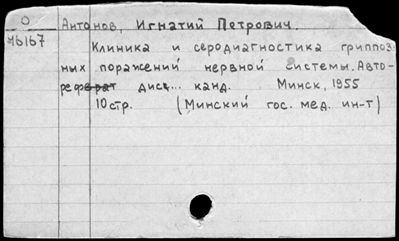 О
76167
Антонов, Игнатий Петрович.
Клиника и серодиагностика гриппоз-
ных поражений нервной системы. Авто-
реферат дисс... канд. Минск, 1955
10 стр. (Минский гос. мед. ин-т)